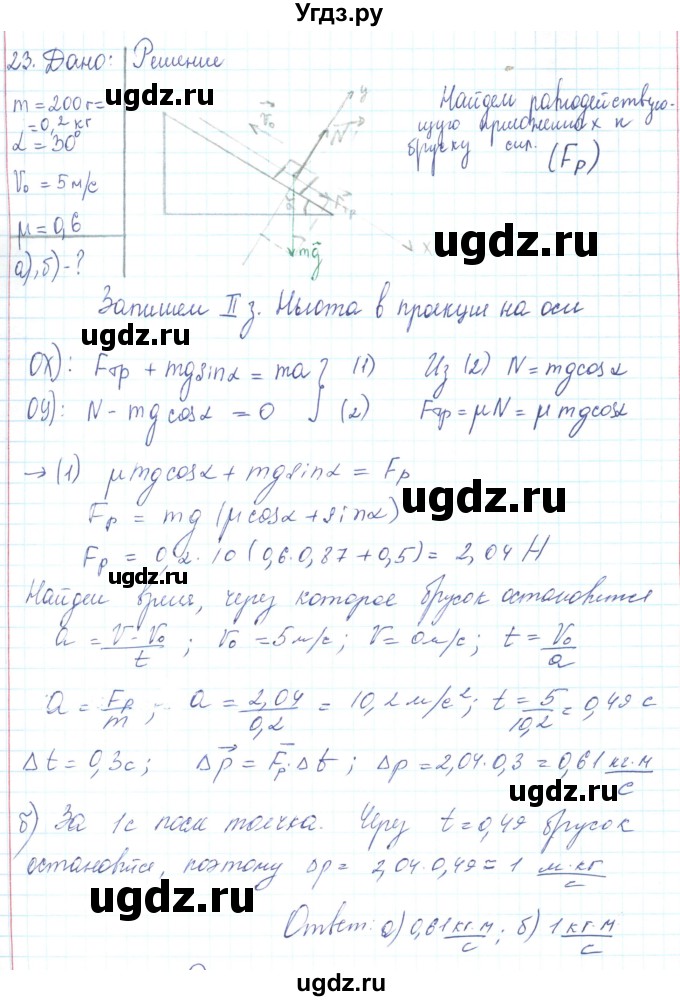 Угдз.ру
23. Дано: Решение
m = 200 г =
= 0,2 кг
α = 30°
V₀ = 5 м/с
μ = 0,6
а), б) - ?
y
V₀
N
Fтр
mg
x
Найдем равнодействую-
щую приложенных к
бруску сил.
(Fр)
ugdz.ru
ugdz.ru
Запишем II з. Ньютона в проекции на оси
ugdz.ru
OX): Fтр + mg sinα = ma } (1) Из (2) N = mg cosα
OY): N - mg cosα = 0 } (2) Fтр = μN = μ mg cosα
→ (1) μmg cosα + mg sinα = Fр
ugdz.ru
Fр = mg (μ cosα + sinα)
ugdz.ru
Fр = 0,2 · 10 (0,6 · 0,87 + 0,5) = 2,04 Н
Найдем время, через которое брусок остановится
a = (V - V₀)/t ; V₀ = 5 м/с ; V = 0 м/с ; t = V₀/a
ugdz.ru
a = Fр/m ; a = 2,04/0,2 = 10,2 м/с² ; t = 5/10,2 = 0,49 с
ugdz.ru
Δt = 0,3 с ; Δp = Fр · Δt ; Δp = 2,04 · 0,3 = 0,61 кг·м/с
б) За 1 с после толчка. Через t = 0,49 брусок
остановится, поэтому Δp = 2,04 · 0,49 = 1 м·кг/с
ugdz.ru
ugdz.ru
Ответ: а) 0,61 кг·м/с ; б) 1 кг·м/с
ugdz.ru